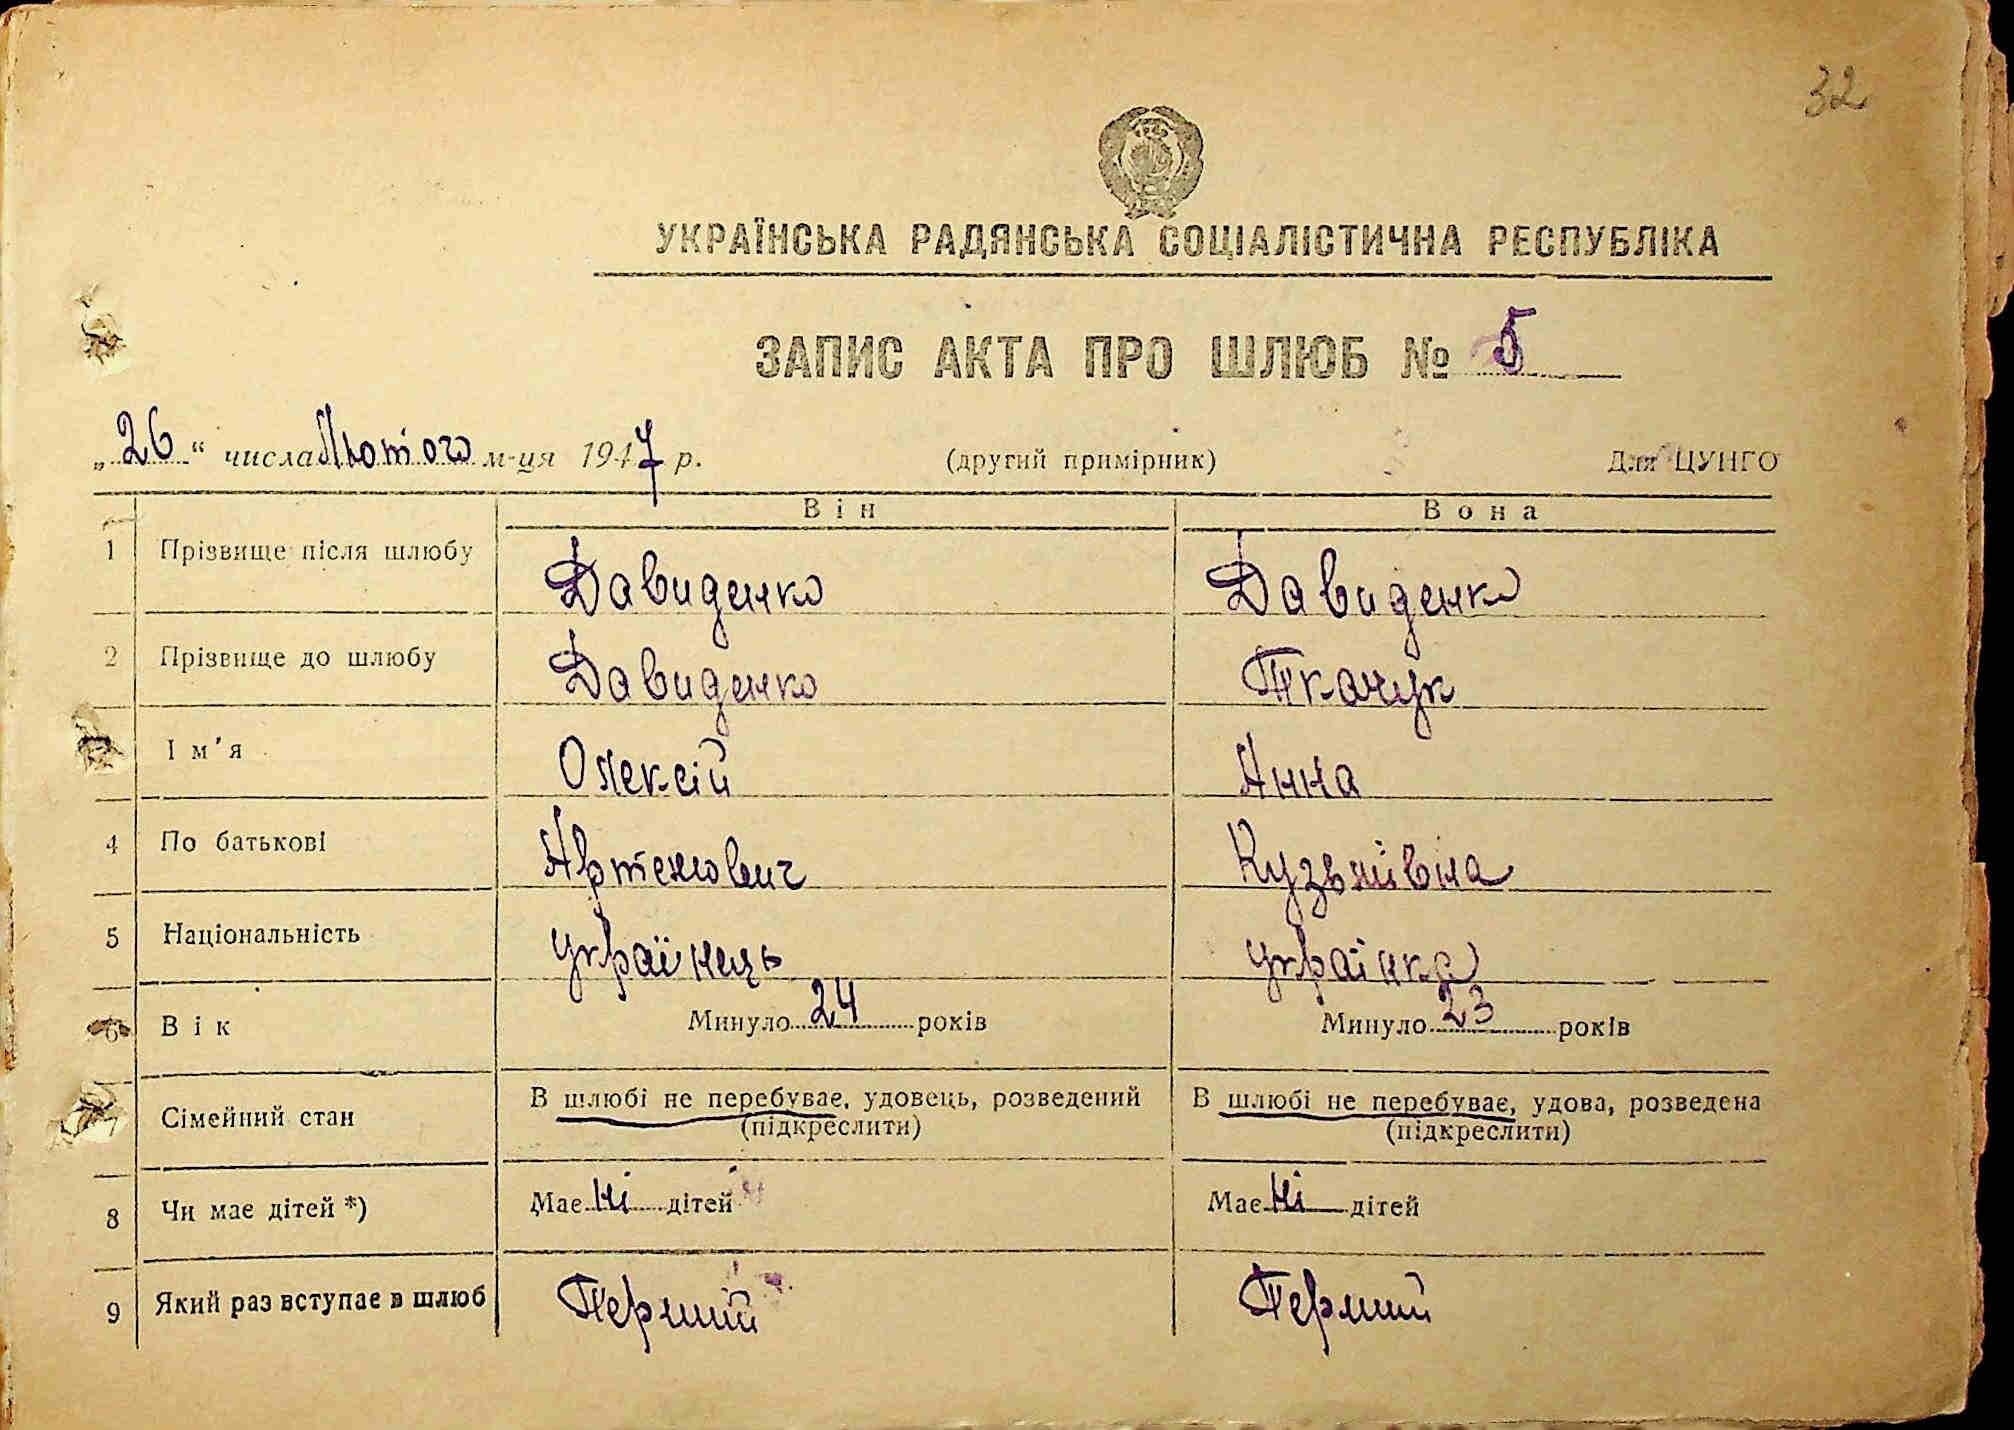 32
УКРАЇНСЬКА РАДЯНСЬКА СОЦІАЛІСТИЧНА РЕСПУБЛІКА
ЗАПИС АКТА ПРО ШЛЮБ № 5
„26“ числа Лютого м-ця 1947 р. (другий примірник) Для ЦУНГО
Він Вона
1 Прізвище після шлюбу Давиденко Давиденко
2 Прізвище до шлюбу Давиденко Ткачук
Ім'я Олексій Анна
4 По батькові Артемович Кузьмівна
5 Національність українець українка
6 Вік Минуло 24 років Минуло 23 років
Сімейний стан В шлюбі не перебуває, удовець, розведений В шлюбі не перебуває, удова, розведена
(підкреслити) (підкреслити)
8 Чи має дітей *) Має ні дітей Має ні дітей
9 Який раз вступає в шлюб Перший Перший